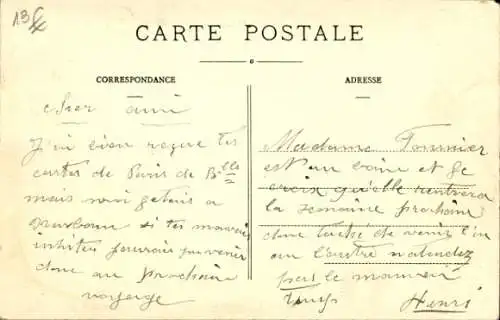 13f
CARTE POSTALE
CORRESPONDANCE
ADRESSE
cher ami
J'ai bien reçue tes
cartes de Paris de Blle
mais moi j'etais a
si tu mavais
pouvais
donc au prochain
voyage
Madame Fournier
est au bains et je
crois qu'elle rentrera
la semaine prochaine
donc taché de venir l'un
ou l'autre natendez
pas le mauvais
temps Henri